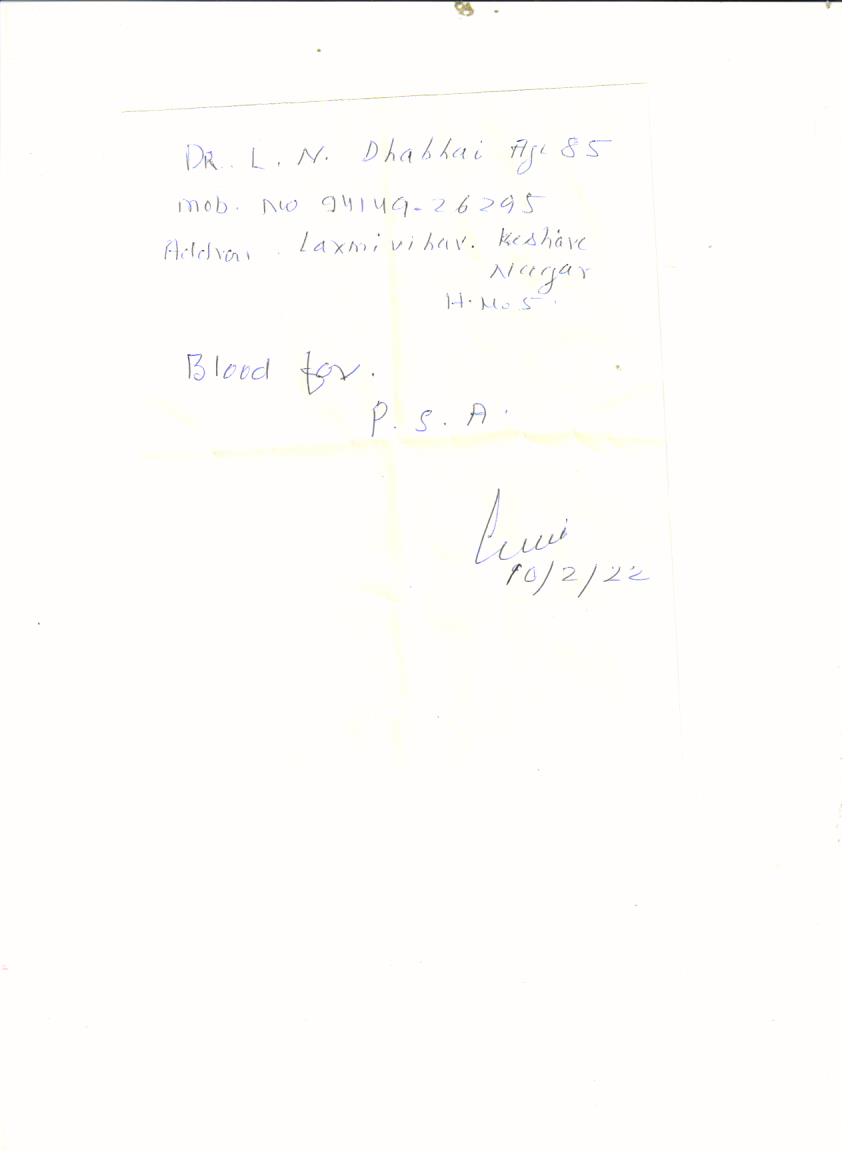 DR. L. N. Dhabhai Age 85
mob. No 94149-26295
Address Laxmi vihar. Keshave
Nagar
H. No 5.
Blood for.
P. S. A.
10/2/22